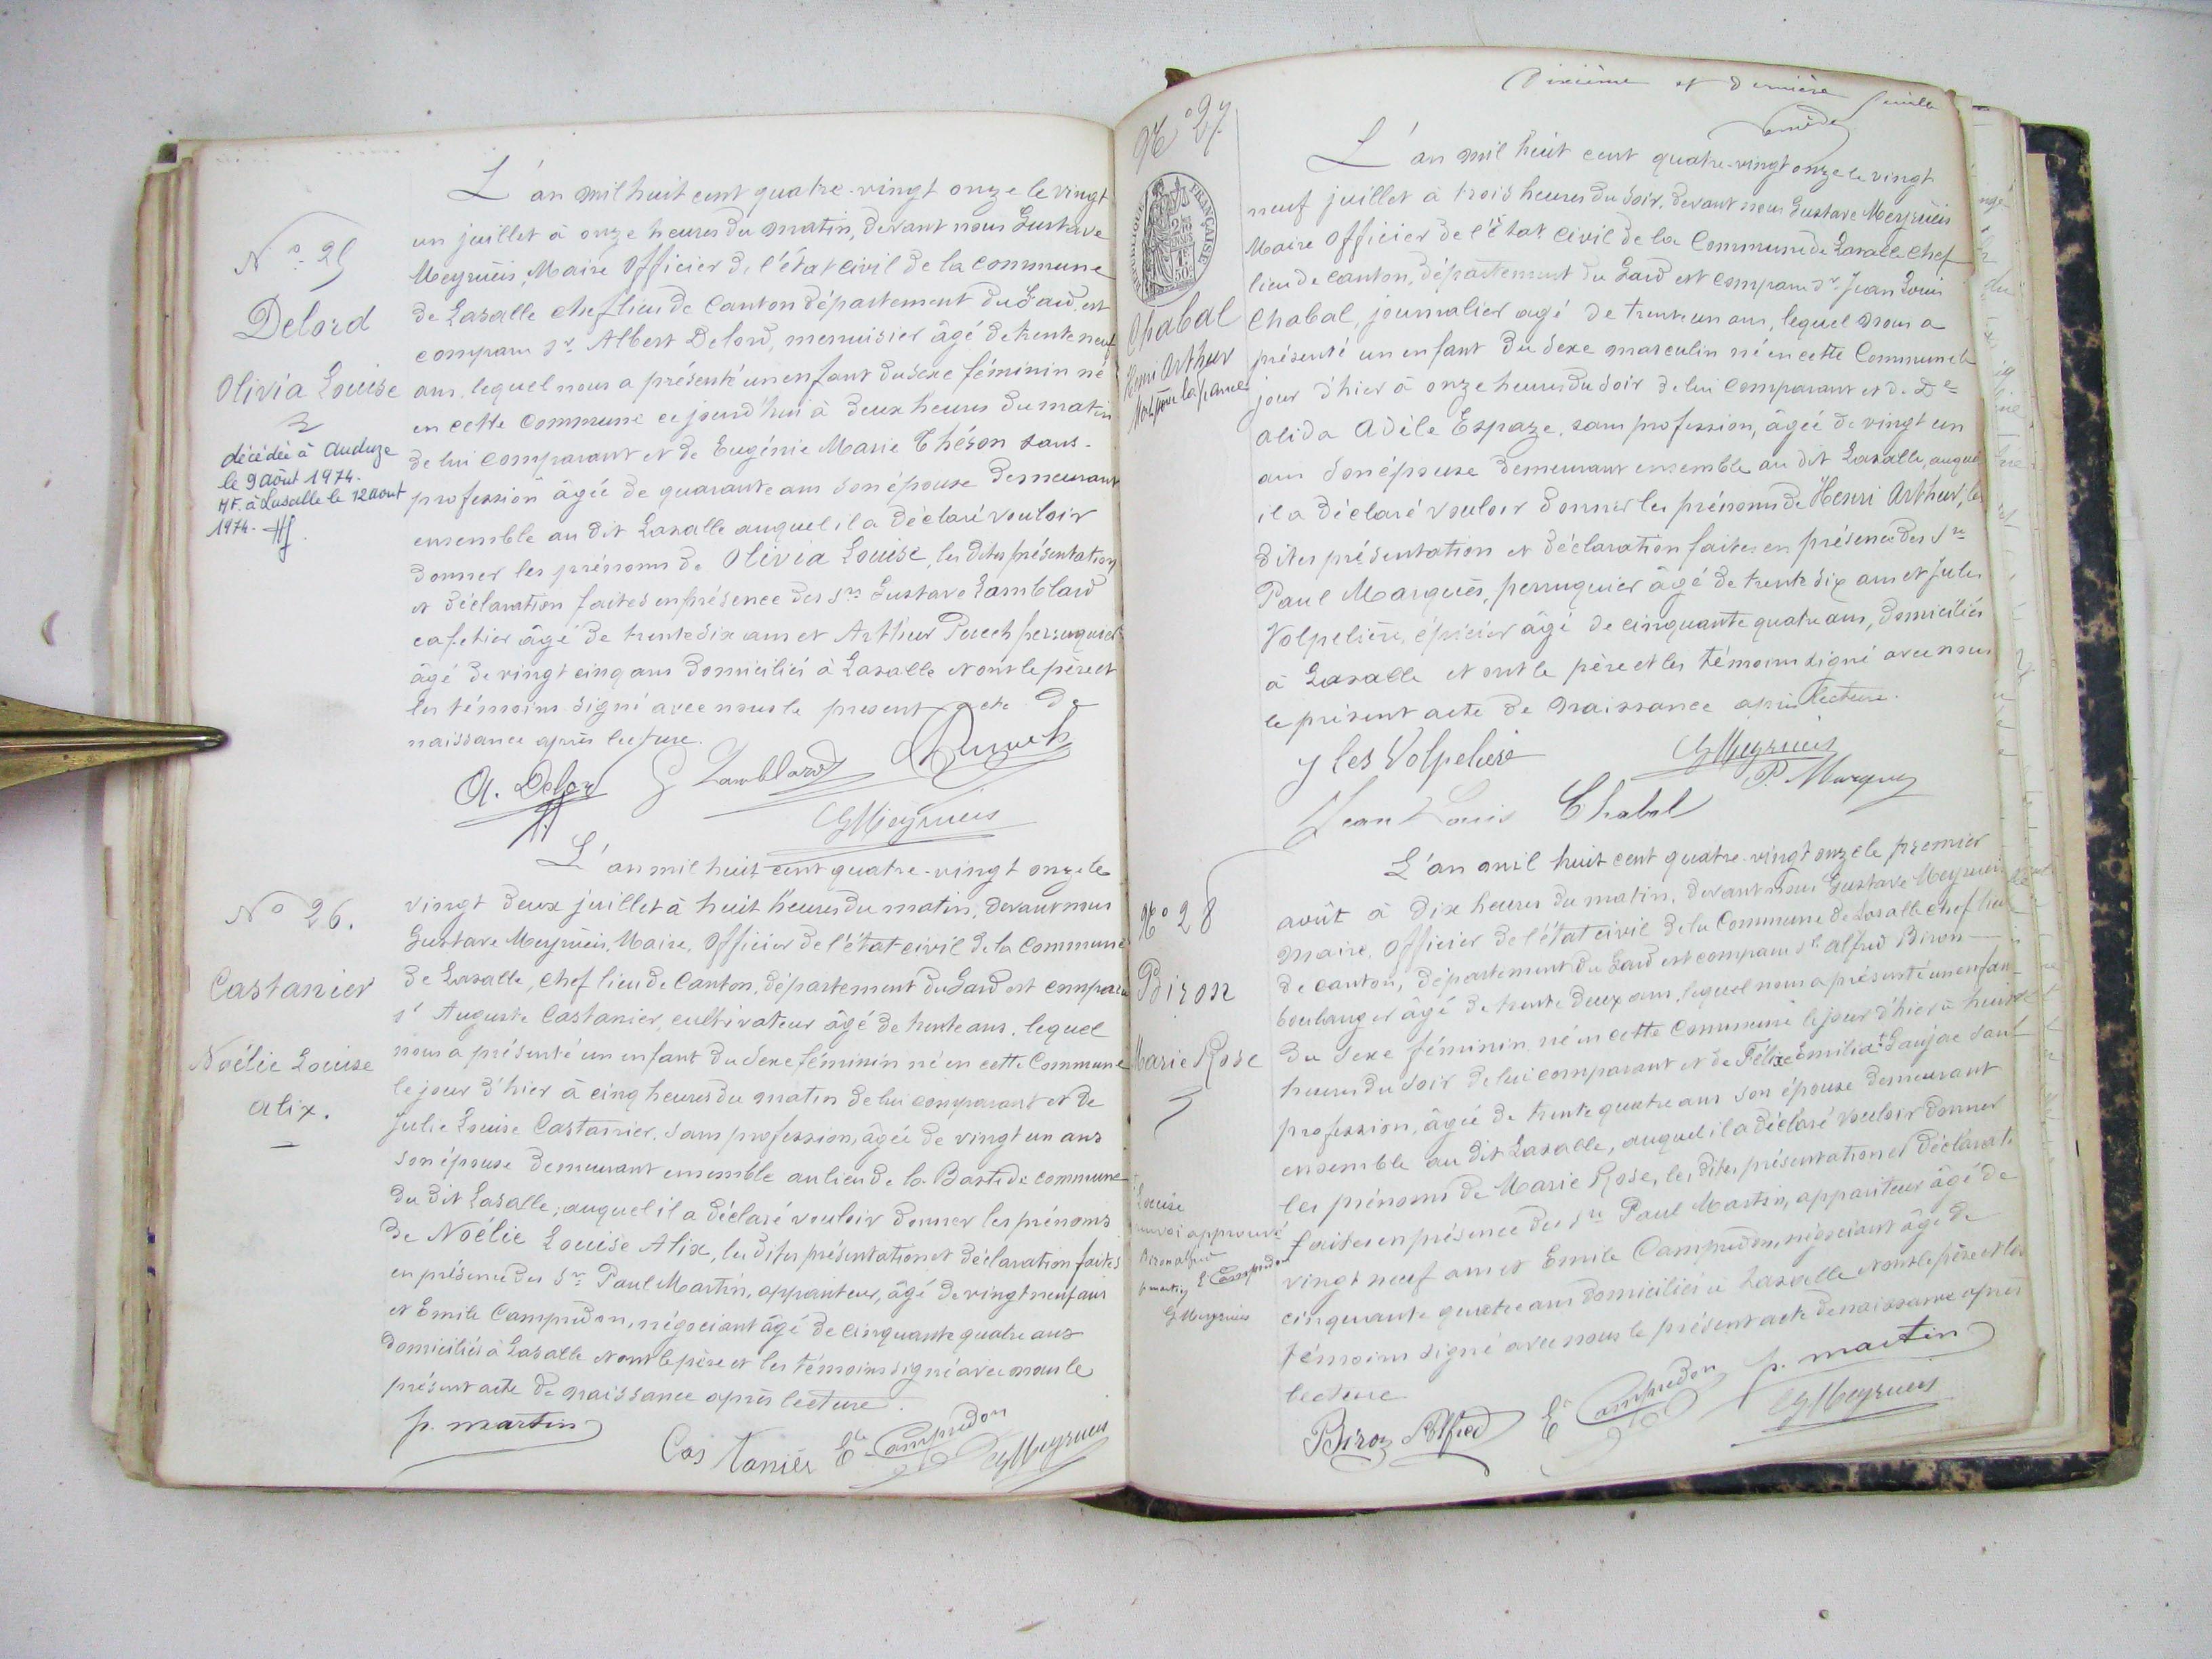 N° 25
Delord
Olivia Louise
décédée à Anduze
le 9 août 1974.
MF. à Lasalle le 12 août
1974.
L'an mil huit cent quatre-vingt onze le vingt
un juillet à onze heures du matin, devant nous Gustave
Meyrueis, Maire Officier de l'état civil de la commune
de Lasalle chef lieu de Canton département du Gard, est
comparu sr Albert Delord, menuisier âgé de trente neuf
ans, lequel nous a présenté un enfant du sexe féminin né
en cette Commune ce jourd'hui à deux heures du matin
de lui comparant et de Eugénie Marie Théron sans
profession âgée de quarante ans son épouse demeurant
ensemble au dit Lasalle auquel il a déclaré vouloir
donner les prénoms de Olivia Louise, les dites présentation
et déclaration faites en présence des srs Gustave Lamblard
cafetier âgé de trente six ans et Arthur Puech perruquier
âgé de vingt cinq ans domiciliés à Lasalle et ont le père et
les témoins signé avec nous le present acte de
naissance après lecture.
A. Delord G Lamblard APuech
GMeyrueis
N° 26.
Castanier
Noélie Louise
Alix.
L'an mil huit cent quatre-vingt onze le
vingt deux juillet à huit heures du matin, devant nous
Gustave Meyrueis, Maire, Officier de l'état civil de la Commune
de Lasalle, chef lieu de Canton, département du Gard est comparu
sr Auguste Castanier, cultivateur âgé de trente ans, lequel
nous a présenté un enfant du sexe féminin né en cette Commune
le jour d'hier à cinq heures du matin de lui comparant et de
Julie Louise Castanier, sans profession, âgée de vingt un ans
son épouse demeurant ensemble au lieu de la Bastide commune
du dit Lasalle; auquel il a déclaré vouloir donner les prénoms
de Noélie Louise Alix, les dites présentation et déclaration faites
en présence des srs Paul Martin, appariteur, âgé de vingt neuf ans
et Emile Campredon, négociant âgé de cinquante quatre ans
domiciliés à Lasalle et ont le père et les témoins signé avec nous le
présent acte de naissance après lecture.
p. martin
Castanier Ele Campredon GMeyrueis
Dixième et dernière feuille
N° 27
RÉPUBLIQUE FRANÇAISE
Chabal
Henri Arthur
Mort pour la france
L'an mil huit cent quatre-vingt onze le vingt
neuf juillet à trois heures du soir, devant nous Gustave Meyrueis
Maire Officier de l'état civil de la Commune de Lasalle chef
lieu de canton, département du Gard est comparu sr Jean Louis
Chabal, journalier agé de trente un ans, lequel nous a
présenté un enfant du sexe masculin né en cette Commune le
jour d'hier à onze heures du soir de lui comparant et de De
Alida Adèle Espaze, sans profession, âgée de vingt un
ans son épouse demeurant ensemble au dit Lasalle, auquel
il a déclaré vouloir donner les prénoms de Henri Arthur, les
dites présentation et déclaration faites en présence des srs
Paul Marquès, perruquier âgé de trente six ans et Jules
Volpelière, épicier âgé de cinquante quatre ans, domiciliés
à Lasalle et ont le père et les témoins signé avec nous
le présent acte de naissance après lecture.
Jules Volpeliere GMeyrueis
P. Marques
Jean Louis Chabal
N° 28
Biron
Marie Rose
L'an mil huit cent quatre-vingt onze le premier
août à dix heures du matin, devant nous Gustave Meyrueis
maire, Officier de l'état civil de la Commune de Lasalle chef lieu
de canton, département du Gard est comparu sr Alfred Biron
boulanger âgé de trente deux ans, lequel nous a présenté un enfant
du sexe féminin né en cette Commune le jour d'hier à huit
heures du soir de lui comparant et de Félixe Emilia + Gaujac sans
profession, âgée de trente quatre ans son épouse demeurant
ensemble au dit Lasalle, auquel il a déclaré vouloir donner
les prénoms de Marie Rose, les dites présentation et déclarat.
faites en présence des srs Paul Martin, appariteur âgé de
vingt neuf ans et Emile Campredon, négociant âgé de
cinquante quatre ans domiciliés à Lasalle et ont le père et les
témoins signé avec nous le présent acte de naissance après
lecture
Biron Alfred Ele Campredon p. martin
GMeyrueis
+ Louise
renvoi approuvé
Biron alfred
p martin E Campredon
GMeyrueis